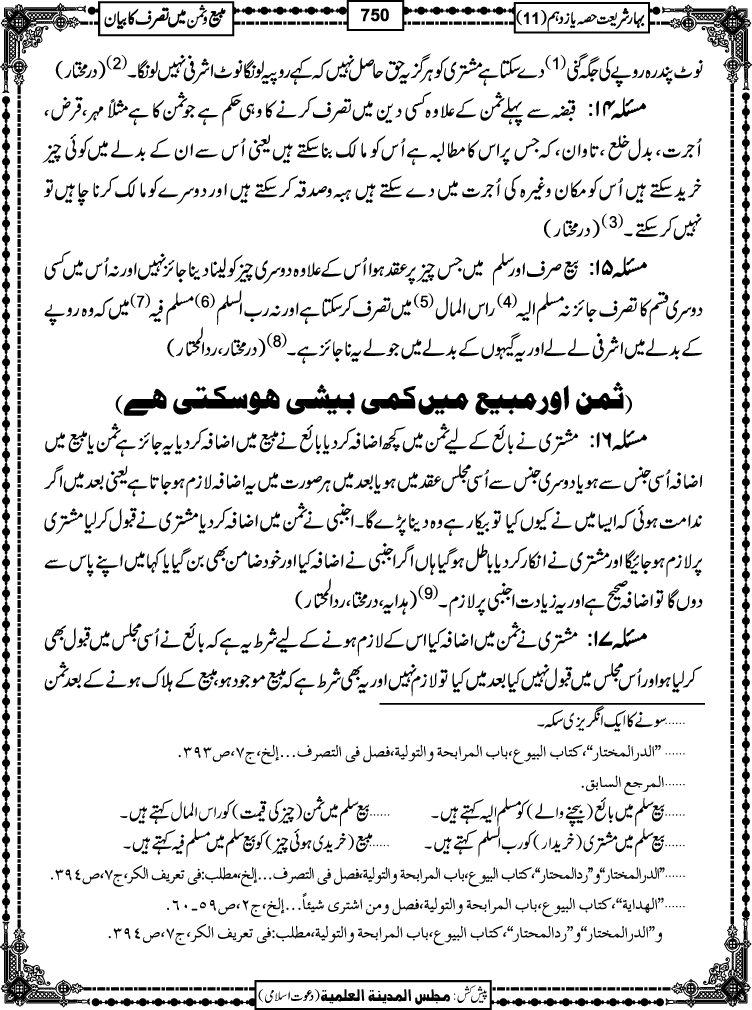 بہار شریعت حصہ یازدہم (11)
750
مبیع و ثمن میں تصرف کا بیان
نوٹ پندرہ روپے کی جگہ گنی (1) دے سکتا ہے مشتری کو ہرگز یہ حق حاصل نہیں کہ کہے روپیہ لونگا نوٹ اشرفی نہیں لونگا۔ (2) (درمختار)
مسئلہ ۱۴: قبضہ سے پہلے ثمن کے علاوہ کسی دین میں تصرف کرنے کا وہی حکم ہے جو ثمن کا ہے مثلاً مہر، قرض،
اُجرت، بدل خلع، تاوان، کہ جس پر اس کا مطالبہ ہے اُس کو مالک بنا سکتے ہیں یعنی اُس سے ان کے بدلے میں کوئی چیز
خرید سکتے ہیں اُس کو مکان وغیرہ کی اُجرت میں دے سکتے ہیں ہبہ و صدقہ کر سکتے ہیں اور دوسرے کو مالک کرنا چاہیں تو
نہیں کر سکتے۔ (3) (درمختار)
مسئلہ ۱۵: بیع صرف اور سلم میں جس چیز پر عقد ہوا اُس کے علاوہ دوسری چیز کو لینا دینا جائز نہیں اور نہ اُس میں کسی
دوسری قسم کا تصرف جائز نہ مسلم الیہ (4) راس المال (5) میں تصرف کر سکتا ہے اور نہ رب السلم (6) مسلم فیہ (7) میں کہ وہ روپے
کے بدلے میں اشرفی لے لے اور یہ گیہوں کے بدلے میں جو لے یہ ناجائز ہے۔ (8) (درمختار، ردالمحتار)
(ثمن اور مبیع میں کمی بیشی ہوسکتی ہے)
مسئلہ ۱۶: مشتری نے بائع کے لیے ثمن میں کچھ اضافہ کر دیا یا بائع نے مبیع میں اضافہ کر دیا یہ جائز ہے ثمن یا مبیع میں
اضافہ اُسی جنس سے ہو یا دوسری جنس سے اُسی مجلس عقد میں ہو یا بعد میں ہر صورت میں یہ اضافہ لازم ہو جاتا ہے یعنی بعد میں اگر
ندامت ہوئی کہ ایسا میں نے کیوں کیا تو بیکار ہے وہ دینا پڑے گا۔ اجنبی نے ثمن میں اضافہ کر دیا مشتری نے قبول کر لیا مشتری
پر لازم ہو جائیگا اور مشتری نے انکار کر دیا باطل ہو گیا ہاں اگر اجنبی نے اضافہ کیا اور خود ضامن بھی بن گیا یا کہا میں اپنے پاس سے
دوں گا تو اضافہ صحیح ہے اور یہ زیادت اجنبی پر لازم۔ (9) (ہدایہ، درمختار، ردالمحتار)
مسئلہ ۱۷: مشتری نے ثمن میں اضافہ کیا اس کے لازم ہونے کے لیے شرط یہ ہے کہ بائع نے اُسی مجلس میں قبول بھی
کر لیا ہو اور اُس مجلس میں قبول نہیں کیا بعد میں کیا تو لازم نہیں اور یہ بھی شرط ہے کہ مبیع موجود ہو، مبیع کے ہلاک ہونے کے بعد ثمن
......سونے کا ایک انگریزی سکہ۔
......"الدرالمختار"، کتاب البیوع، باب المرابحة والتولیة، فصل فی التصرف...إلخ، ج۷، ص۳۹۳.
......المرجع السابق.
......بیع سلم میں بائع (بیچنے والے) کو مسلم الیہ کہتے ہیں۔ ......بیع سلم میں ثمن (چیز کی قیمت) کو راس المال کہتے ہیں۔
......بیع سلم میں مشتری (خریدار) کو رب السلم کہتے ہیں۔ ......مبیع (خریدی ہوئی چیز) کو بیع سلم میں مسلم فیہ کہتے ہیں۔
......"الدرالمختار" و "ردالمحتار"، کتاب البیوع، باب المرابحة والتولیة، فصل فی التصرف...إلخ، مطلب: فی تعریف الکر، ج۷، ص۳۹٤.
......"الهدایة"، کتاب البیوع، باب المرابحة والتولیة، فصل ومن اشتری شیئاً...إلخ، ج۲، ص۵۹۔٦۰.
و "الدرالمختار" و "ردالمحتار"، کتاب البیوع، باب المرابحة والتولیة، مطلب: فی تعریف الکر، ج۷، ص۳۹٤.
پیش کش: مجلس المدینة العلمیة (دعوت اسلامی)